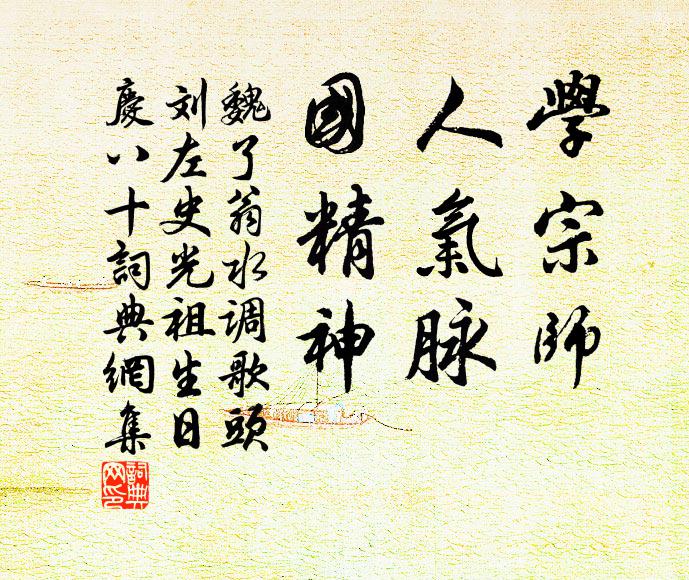 學宗師
人氣脉
國精神
魏了翁水调歌頭
刘左史光祖生日
慶八十詞典網集
詞典
网印